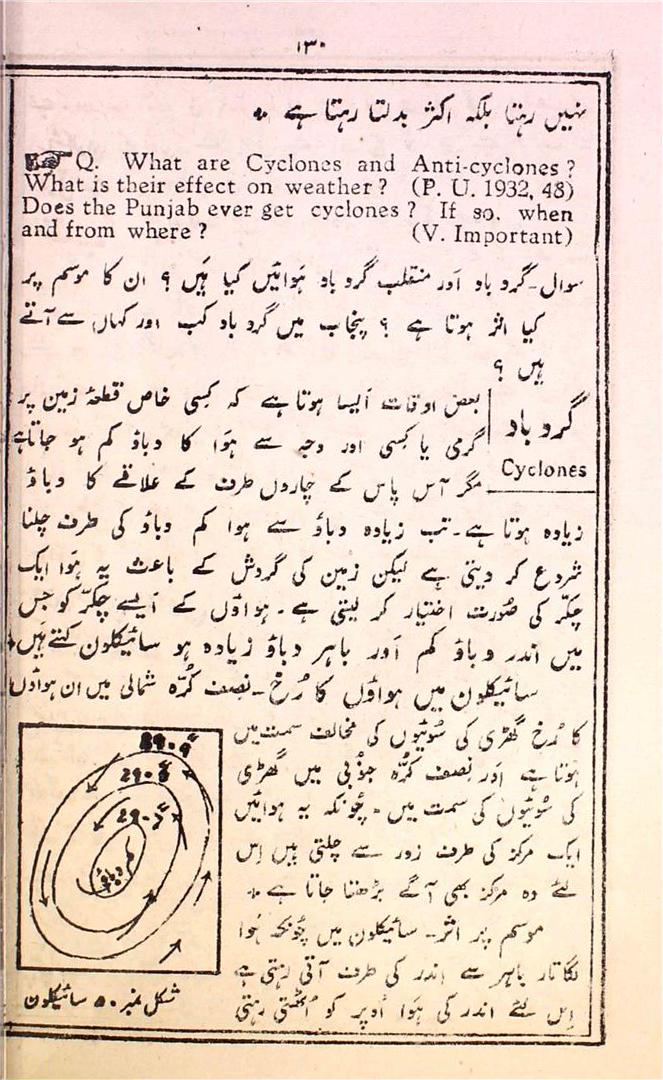 ۱۳۰
نہیں رہتا بلکہ اکثر بدلتا رہتا ہے ٭
Q. What are Cyclones and Anti-cyclones ?
What is their effect on weather ? (P. U. 1932, 48)
Does the Punjab ever get cyclones ? If so. when
and from where ? (V. Important)
سوال۔ گرد باد اَور منقلب گرد باد ہَوائیں کیا ہَیں ؟ ان کا موسم پر
کیا اثر ہوتا ہے ؟ پنجاب میں گرد باد کب اور کہاں سے آتے
ہیں ؟
گرد باد
Cyclones
بعض اوقات اَیسا ہوتا ہے کہ کِسی خاص قطعۂ زمین پر
گرمی یا کسی اور وجہ سے ہَوا کا دباؤ کم ہو جاتا ہے
مگر آس پاس کے چاروں طرف کے علاقے کا دباؤ
زیادہ ہوتا ہے۔ تب زیادہ دباؤ سے ہوا کم دباؤ کی طرف چلنا
شروع کر دیتی ہے لیکن زمین کی گردش کے باعث یہ ہَوا ایک
چکّر کی صُورت اختیار کر لیتی ہے۔ ہواؤں کے اَیسے چکّر کو جس
میں اندر دباؤ کم اَور باہر دباؤ زیادہ ہو سائیکلون کہتے ہَیں
سائیکلون میں ہواؤں کا رُخ۔ نِصف کُرّہ شمالی میں ان ہواؤں
کا رُخ گھڑی کی سُوئیوں کی مخالف سمت میں
ہوتا ہے اَور نِصف کُرّہ جنُوبی میں گھڑی
کی سُوئیوں کی سمت میں۔ چُونکہ یہ ہوائیں
ایک مرکز کی طرف زور سے چلتی ہیں اِس
لئے وہ مرکز بھی آگے بڑھتا جاتا ہے ٭
موسم پر اثر۔ سائیکلون میں چُونکہ ہَوا
لگاتار باہر سے اندر کی طرف آتی رہتی ہے
اِس لئے اندر کی ہَوا اُوپر کو اُٹھتی رہتی
29.8"
29.7"
کم دباؤ
شکل نمبر ۵۰ سائیکلون